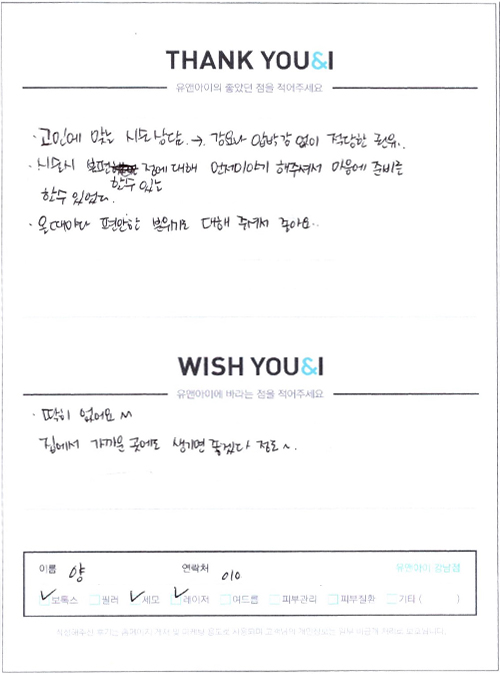 THANK YOU&I
유앤아이의 좋았던 점을 적어주세요
· 고민에 맞는 시술상담. → 강요나 압박감 없이 적당한 권유..
· 시술시 불편 점에 대해 먼저이야기 해주셔서 마음에 준비를
할수 있는
할수 있었다.
· 올때마다 편안한 분위기로 대해 주셔서 좋아요..
WISH YOU&I
유앤아이에 바라는 점을 적어주세요
· 딱히 없어요 ~
집에서 가까운 곳에도 생기면 좋겠다 정도~.
이름 양 연락처 010 유앤아이 강남점
보톡스 필러 제모 레이저 여드름 피부관리 피부질환 기타 ( )